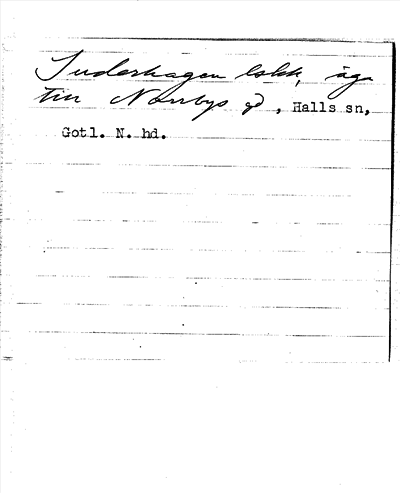 Suderhagen lskk, äga
till Norrbys gd, Halls sn,
Gotl. N. hd.